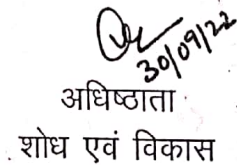 30/09/22
अधिष्ठाता
शोध एवं विकास